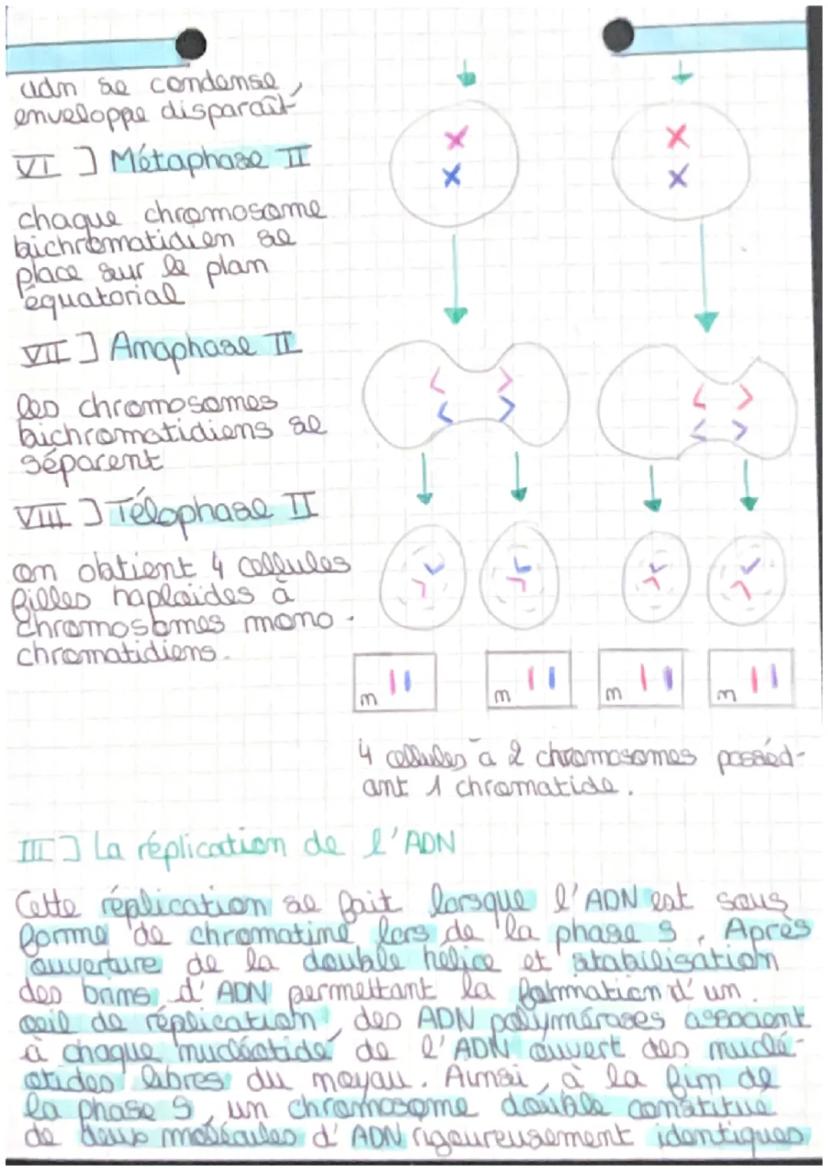 adn se condense,
enveloppe disparaît
VI] Métaphase II
chaque chromosome
bichromatidien se
place sur le plan
équatorial
VII] Anaphase II
les chromosomes
bichromatidiens se
séparent
VIII] Télophase II
on obtient 4 cellules
filles haploïdes à
chromosomes mono-
chromatidiens.
m
m
m
m
4 cellules à 2 chromosomes posséd-
ant 1 chromatide.
III] La réplication de l'ADN
Cette réplication se fait lorsque l'ADN est sous
forme de chromatine lors de la phase S. Après
ouverture de la double hélice et stabilisation
des brins d'ADN permettant la formation d'un
œil de réplication, des ADN polymérases associent
à chaque nucléotide de l'ADN ouvert des nuclé-
otides libres du noyau. Ainsi, à la fin de
la phase S, un chromosome double constitué
de deux molécules d'ADN rigoureusement identiques